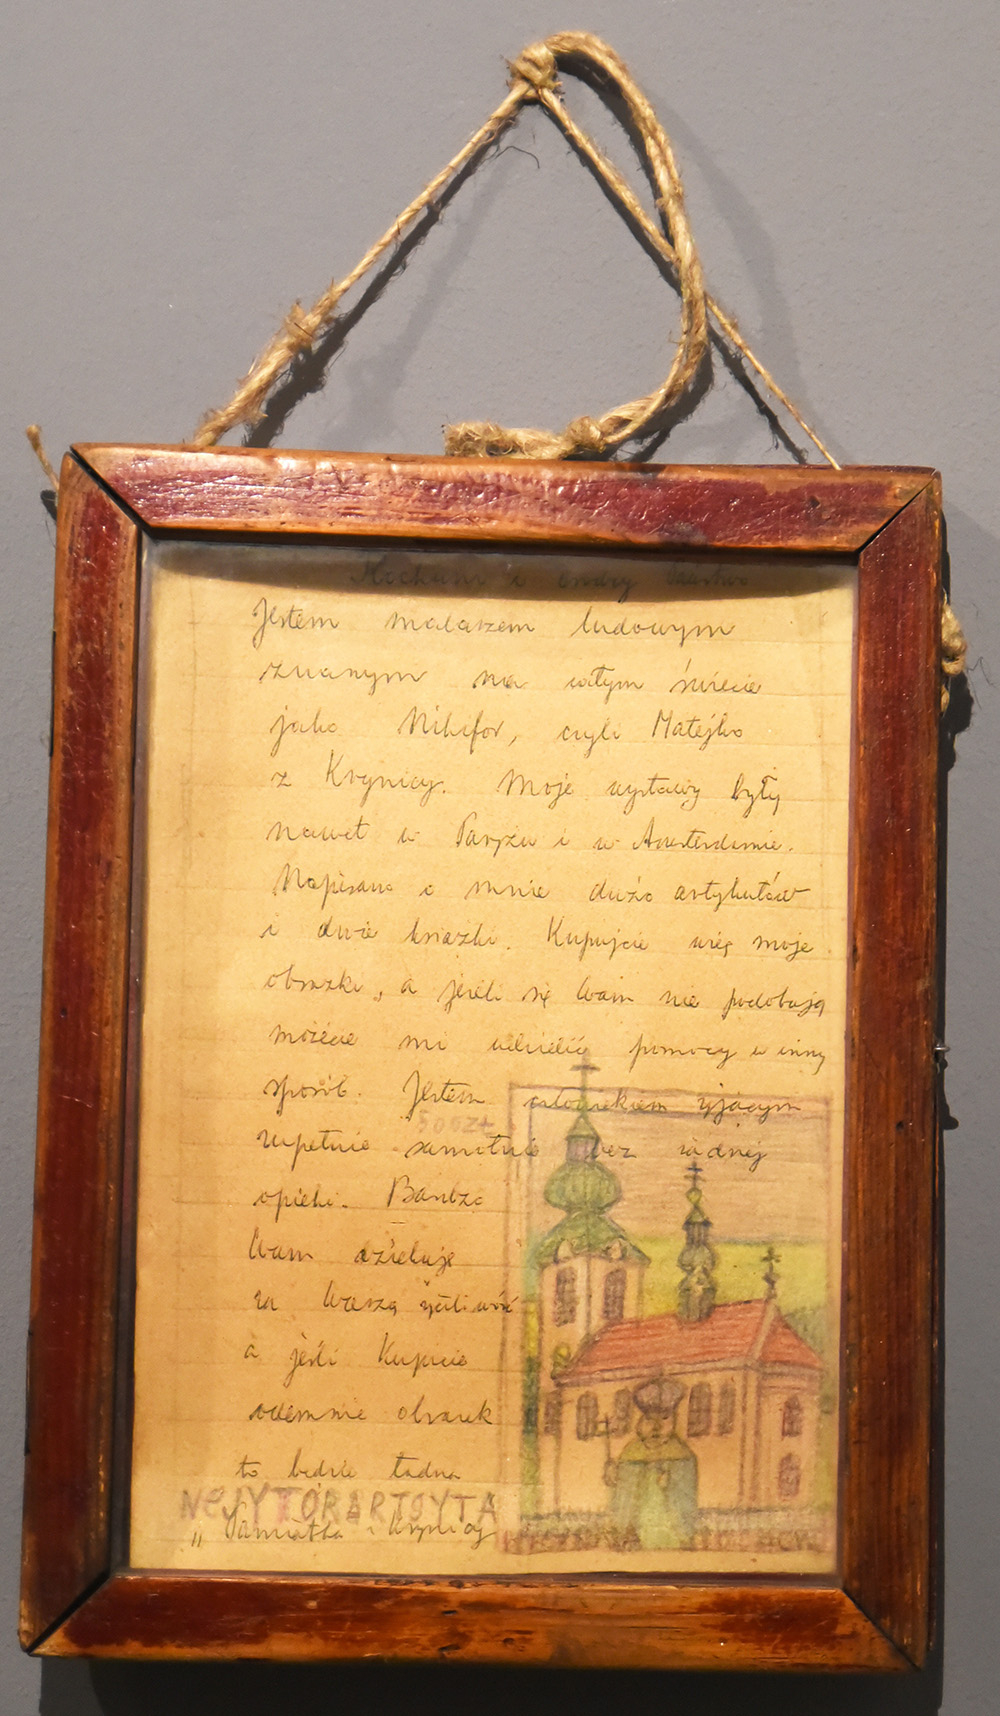 Jestem malarzem ludowym
znanym na całym świecie
jako Nikifor, czyli Matejko
z Krynicy. Moje wystawy były
nawet w Paryżu i w Amsterdamie.
Napisano o mnie dużo artykułów
i dwie książki. Kupujcie więc moje
obrazki, a jeżeli się Wam nie podobają
możecie mi udzielić pomocy w inny
sposób. Jestem człowiekiem żyjącym
500Zł
zupełnie samotnie bez żadnej
opieki. Bardzo
Wam dziękuję
za Waszą życzliwość
a jeśli Kupicie
odemnie obrazek
to będzie ładna
„Pamiątka z Krynicy